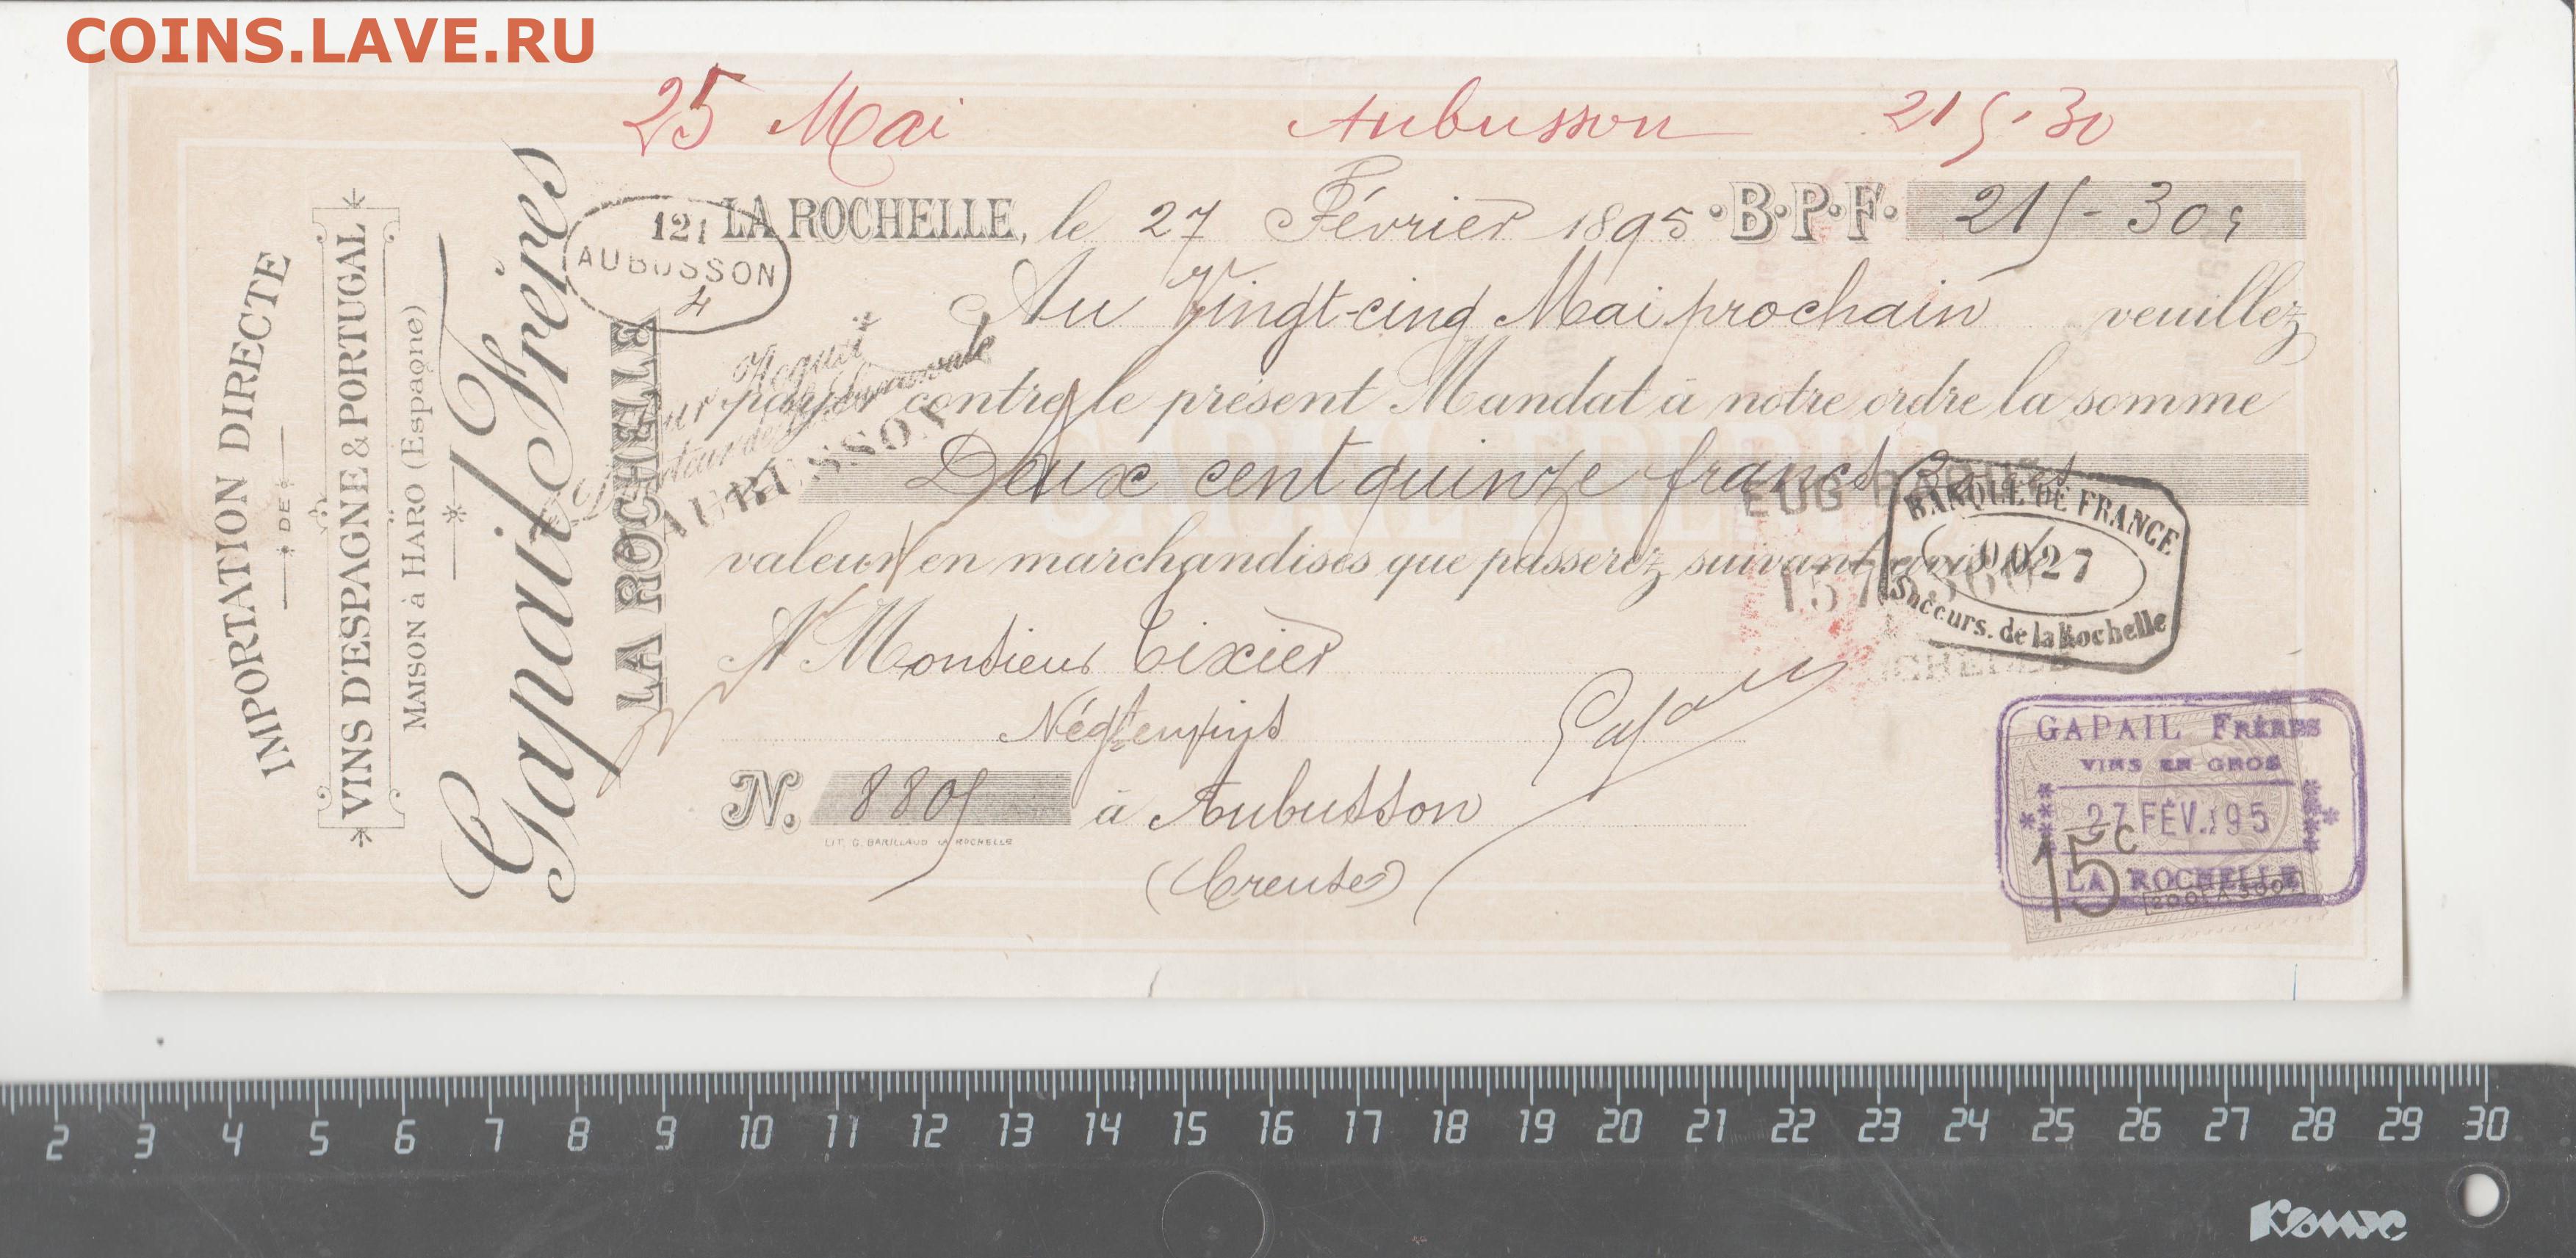 COINS.LAVE.RU
25 Mai Aubusson 215.30
LA ROCHELLE, le 27 Février 1895 B.P.F. 215-30
121
AUBUSSON
4
Au Vingt-cinq Mai prochain veuillez
payer contre le présent Mandat à notre ordre la somme
Deux cent quinze francs 30
valeur en marchandises que passerez suivant avis
A Monsieur Tixier
Négt en vins
N. 8805 à Aubusson
(Creuse)
LIT. G. BARILLAUD LA ROCHELLE
IMPORTATION DIRECTE
DE
VINS D'ESPAGNE & PORTUGAL
MAISON à HARO (Espagne)
Gapail Frères
LA ROCHELLE
Pour Acquit
de la Succursale
AUBUSSON
EUG
BANQUE DE FRANCE
0027
Succurs. de la Rochelle
Gapail
GAPAIL FRÈRES
VINS EN GROS
27 FÉV. 95
LA ROCHELLE
15c
200f à 300f
2 3 4 5 6 7 8 9 10 11 12 13 14 15 16 17 18 19 20 21 22 23 24 25 26 27 28 29 30
Комус